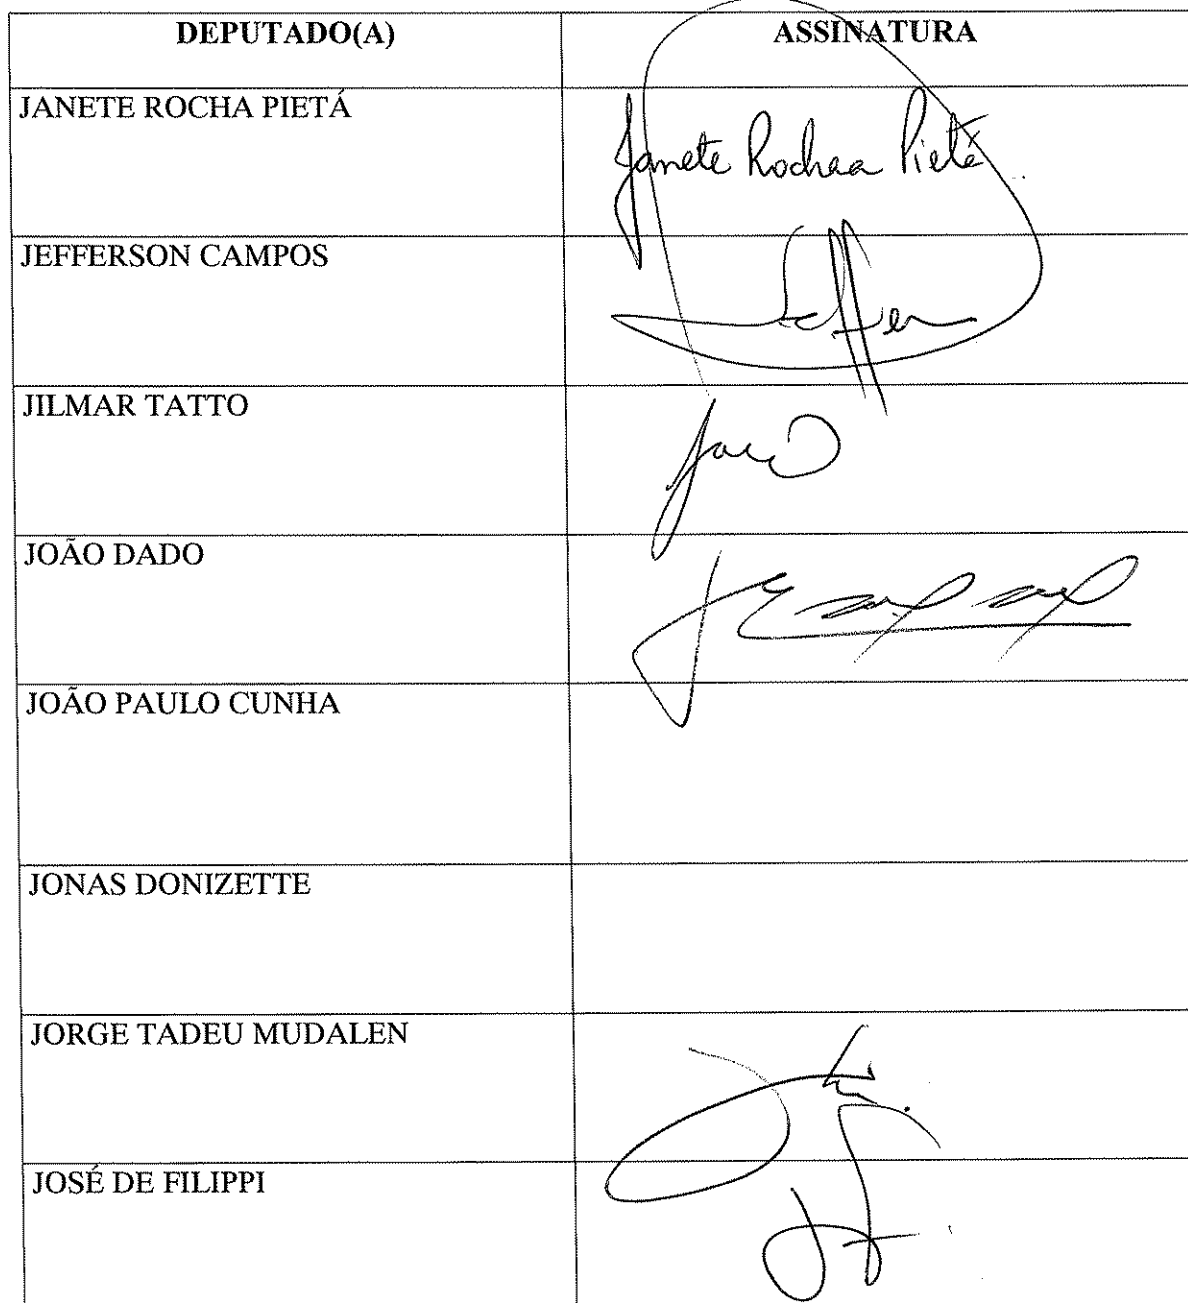 DEPUTADO(A) ASSINATURA
JANETE ROCHA PIETÁ Janete Rocha Pietá
JEFFERSON CAMPOS Jefferson
JILMAR TATTO
JOÃO DADO
JOÃO PAULO CUNHA
JONAS DONIZETTE
JORGE TADEU MUDALEN
JOSÉ DE FILIPPI